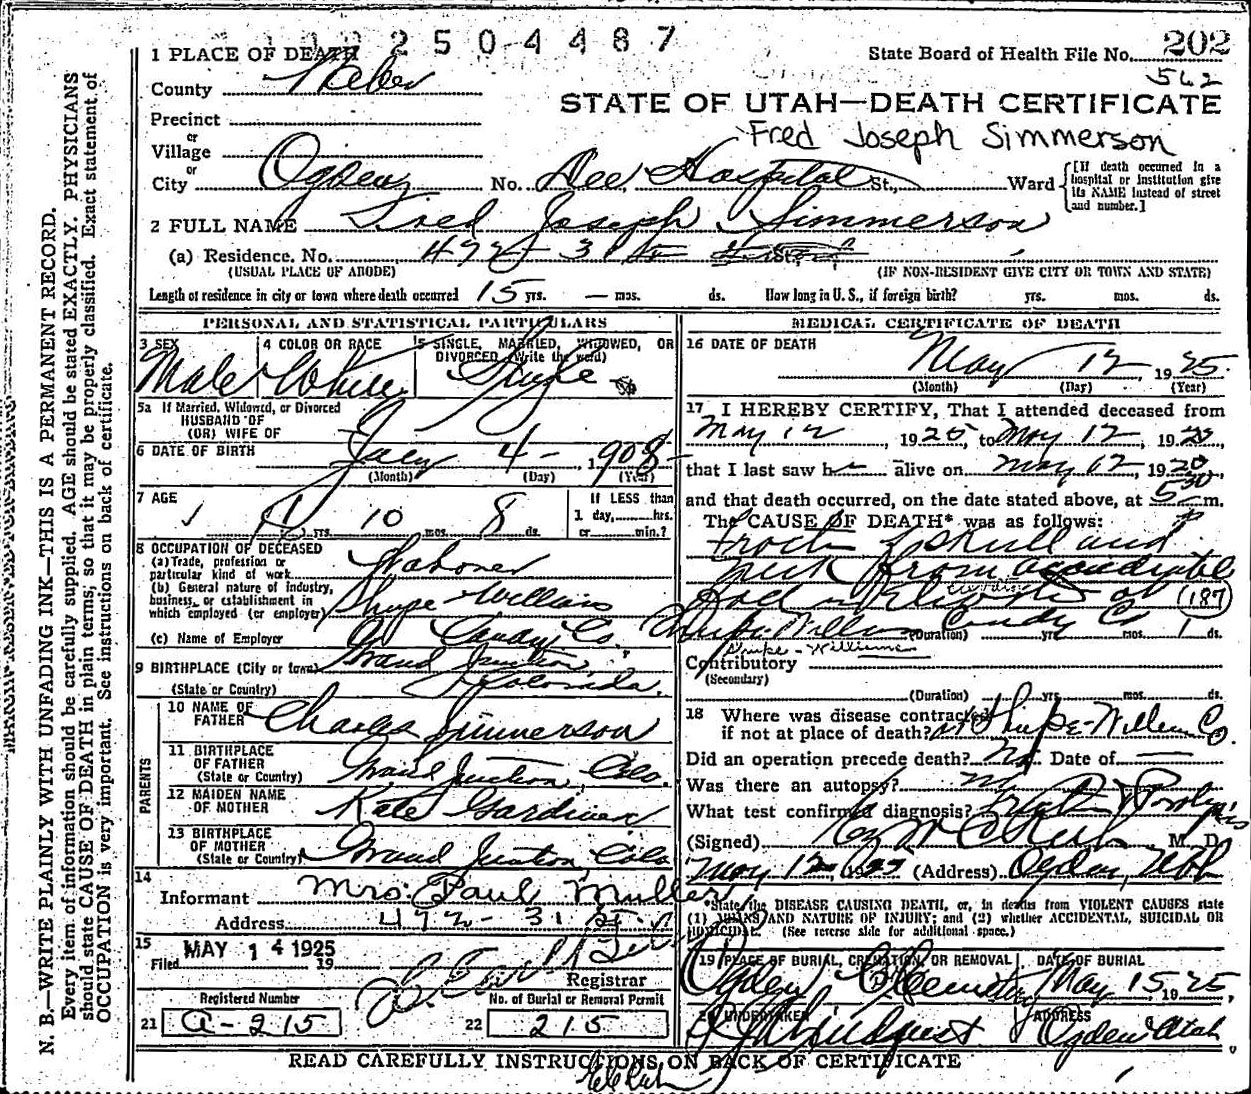 2504487
1 PLACE OF DEATH
State Board of Health File No. 202
562
County Weber
STATE OF UTAH—DEATH CERTIFICATE
Precinct
Fred Joseph Simmerson
or
Village
or
City Ogden No. Dee Hospital St., Ward
[If death occurred in a hospital or institution give its NAME instead of street and number.]
2 FULL NAME Fred Joseph Simmerson
(a) Residence. No. 472 - 31st St.
(USUAL PLACE OF ABODE) (IF NON-RESIDENT GIVE CITY OR TOWN AND STATE)
Length of residence in city or town where death occurred 15 yrs. — mos. ds. How long in U.S., if foreign birth? yrs. mos. ds.
PERSONAL AND STATISTICAL PARTICULARS
3 SEX Male
4 COLOR OR RACE White
5 SINGLE, MARRIED, WIDOWED, OR DIVORCED (Write the word) Single
5a If Married, Widowed, or Divorced
HUSBAND OF
(OR) WIFE OF
6 DATE OF BIRTH July 4 - 1908
(Month) (Day) (Year)
7 AGE yrs. 10 mos. 8 ds.
If LESS than
1 day, hrs.
or min.?
8 OCCUPATION OF DECEASED
(a) Trade, profession or
particular kind of work
(b) General nature of industry,
business, or establishment in
which employed (or employer) Shupe-Williams
(c) Name of Employer Candy Co.
9 BIRTHPLACE (City or town) Grand Junction
(State or Country) Colorado.
PARENTS
10 NAME OF FATHER Charles Simmerson
11 BIRTHPLACE OF FATHER (State or Country) Grand Junction, Colo.
12 MAIDEN NAME OF MOTHER Kate Gardiner
13 BIRTHPLACE OF MOTHER (State or Country) Grand Junction, Colo
14
Informant Mrs. Paul Muller
Address 472 - 31 St.
15
Filed MAY 14 1925 19
Registrar
Registered Number
21 A-215
No. of Burial or Removal Permit
22 215
MEDICAL CERTIFICATE OF DEATH
16 DATE OF DEATH May 12 1925
(Month) (Day) (Year)
17 I HEREBY CERTIFY, That I attended deceased from
May 12, 1925, to May 12, 1925,
that I last saw h alive on May 12, 1925,
and that death occurred, on the date stated above, at 5:30 m.
P
The CAUSE OF DEATH* was as follows:
Fract. of skull and
neck from accidental
Elevator at (187)
Shupe-Williams Candy Co
(Duration) yrs. mos. 1 ds.
Shupe-Williams
Contributory
(Secondary)
(Duration) yrs. mos. ds.
18 Where was disease contracted
if not at place of death? at Shupe-Williams Co.
Did an operation precede death? No. Date of —
Was there an autopsy? no
What test confirmed diagnosis?
(Signed) M. D.
May 12, 1925 (Address) Ogden, Utah
*State the DISEASE CAUSING DEATH, or, in deaths from VIOLENT CAUSES state
(1) MEANS AND NATURE OF INJURY; and (2) whether ACCIDENTAL, SUICIDAL OR
HOMICIDAL. (See reverse side for additional space.)
19 PLACE OF BURIAL, CREMATION, OR REMOVAL Ogden Cemetery
DATE OF BURIAL May 15, 1925,
20 UNDERTAKER Lindquist
ADDRESS Ogden Utah
READ CAREFULLY INSTRUCTIONS ON BACK OF CERTIFICATE
N. B.—WRITE PLAINLY WITH UNFADING INK—THIS IS A PERMANENT RECORD.
Every item of information should be carefully supplied. AGE should be stated EXACTLY. PHYSICIANS
should state CAUSE OF DEATH in plain terms, so that it may be properly classified. Exact statement of
OCCUPATION is very important. See instructions on back of certificate.